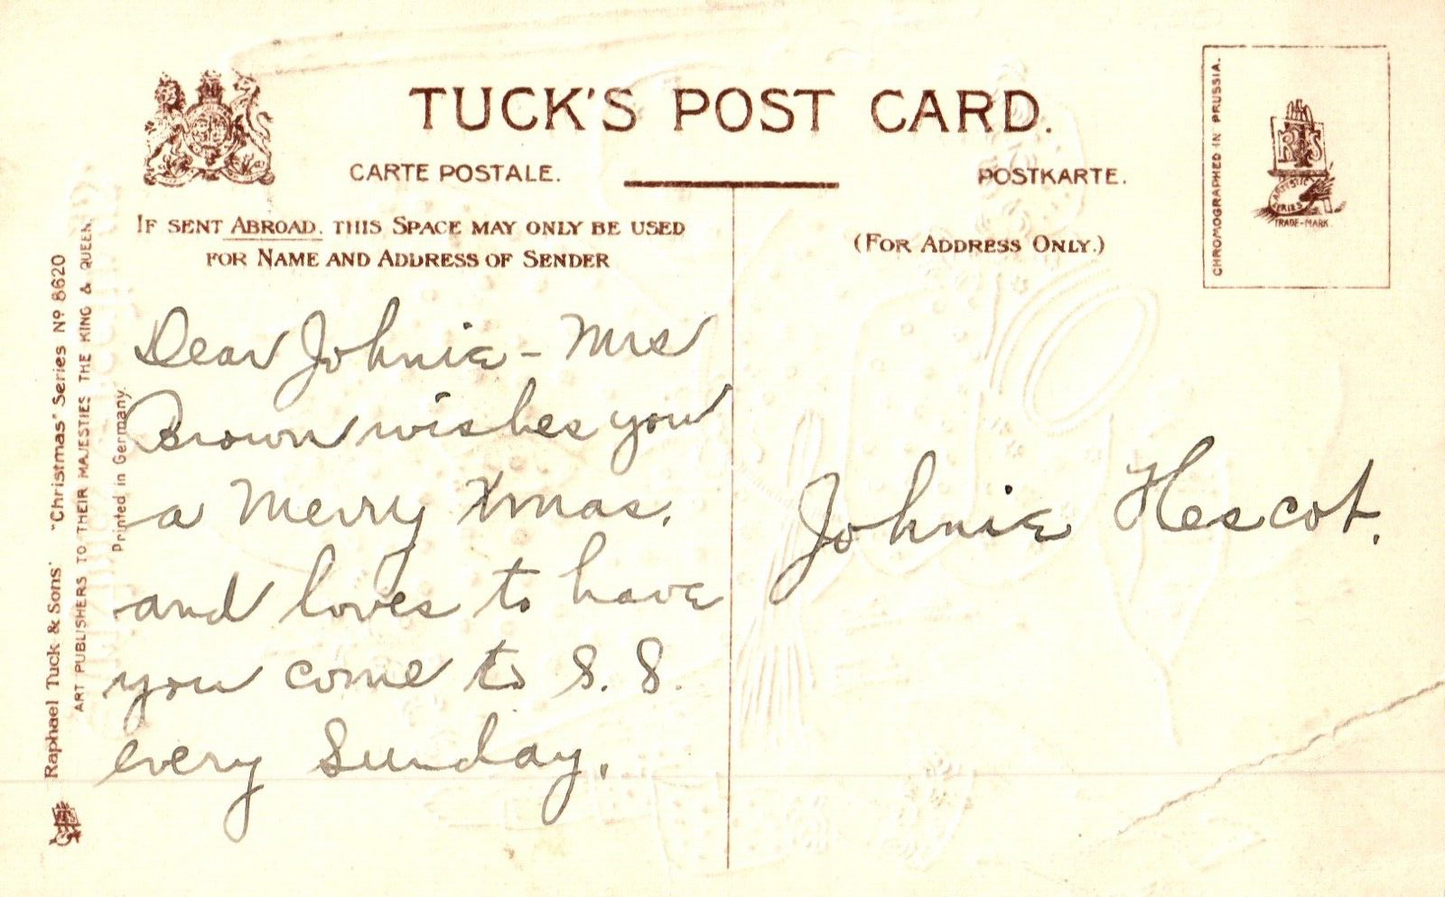 TUCK'S POST CARD.
CARTE POSTALE.
POSTKARTE.
IF SENT ABROAD, THIS SPACE MAY ONLY BE USED
FOR NAME AND ADDRESS OF SENDER
(FOR ADDRESS ONLY.)
CHROMOGRAPHED IN PRUSSIA.
ARTISTIC
SERIES
TRADE-MARK.
Raphael Tuck & Sons' "Christmas" Series No 8620
ART PUBLISHERS TO THEIR MAJESTIES THE KING & QUEEN.
Printed in Germany.
Dear Johnie - Mrs
Brown wishes you
a Merry Xmas.
and loves to have
you come to S. S.
every Sunday.
Johnie Hescot.